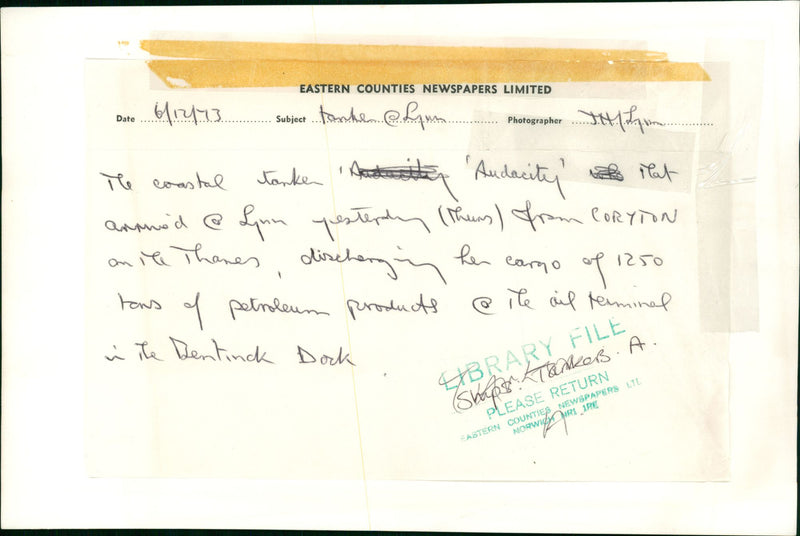 EASTERN COUNTIES NEWSPAPERS LIMITED
Date 6/12/73 Subject tanker @ Lynn Photographer JH/Lynn
The coastal tanker 'Audacity 'Audacity' that
arrived @ Lynn yesterday (Thurs) from CORYTON
on the Thames, discharging her cargo of 1250
tons of petroleum products @ the oil terminal
in the Bentinck Dock.
LIBRARY FILE
Ships: Tankers. A.
PLEASE RETURN
EASTERN COUNTIES NEWSPAPERS LTD
NORWICH NR1 1RE